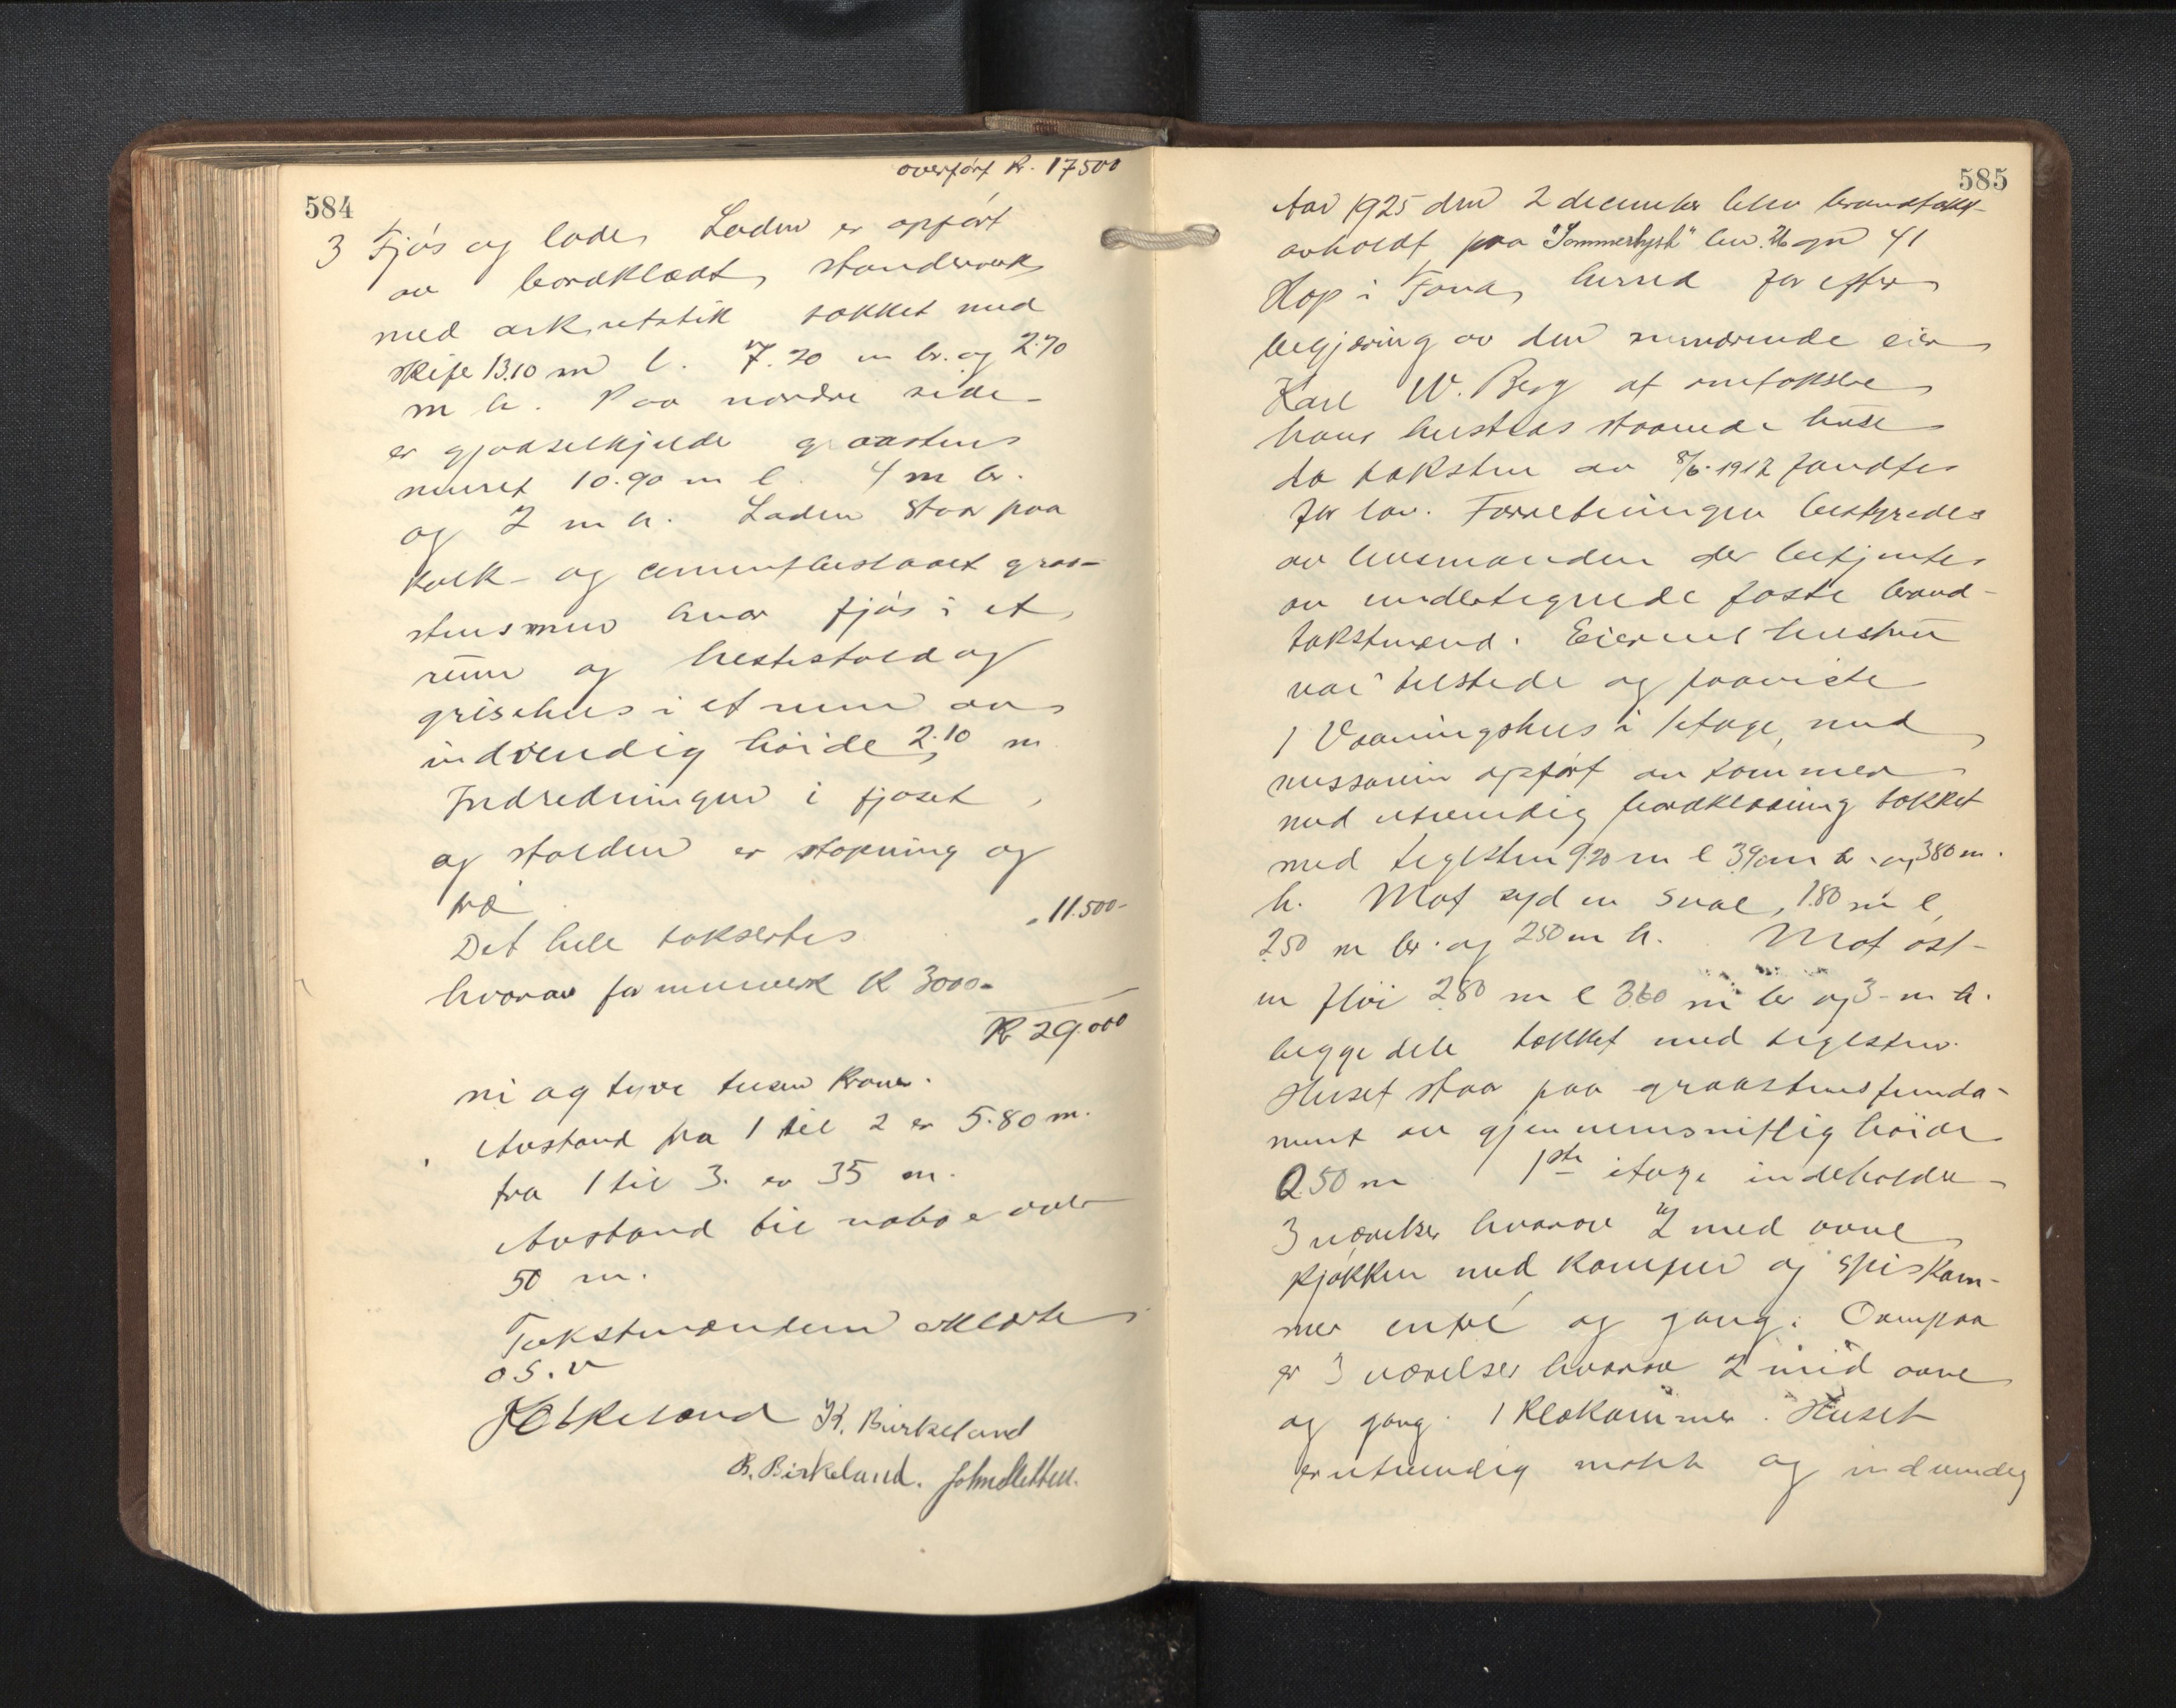 overført Kr. 17500
584
3 Fjøs og lade. Laden er opført
av bordklædt standerverk
med ark, utstik tækket med
skifer 13.10 m l. 7.20 m br. og 2.70
m h. Paa nordre side
er gjødselkjelder graastens
muret 10.90 m l. 4 m br.
og 2 m h. Laden staar paa
kalk- og cementbeslaaet graa-
stensmur hvor fjøs i et
rum og hestestald og
grisehus i et rum av
indvendig høide 2.10 m
Indredningen i fjøset
og stalden er støpning og
træ
Det hele taksertes " 11.500-
hvorav for murverk Kr 3000-
Kr 29.000
ni og tyve tusen Kroner.
Avstand fra 1 til 2 er 5.80 m.
fra 1 til 3. er 35 m.
Avstand til nabo er over
50 m.
Takstmændene erklærte
o s. v
K. Birkeland
B. Birkeland.
585
Aar 1925 den 2 december blev brandtakst
avholdt paa "Sommerlyst" bn. 26 gn 41
Hop i Fana herred for efter
begjæring av den nuværende eier
Karl W. Berg at omtaksere
hans hersteds staaende huse
da taksten av 8/6-1917 fandtes
for lav. Forretningen bestyredes
av lensmanden der betjentes
av undertegnede faste brand-
takstmænd. Eierens hustru
var tilstede og paaviste
1 Vaaningshus i 1 etage, med
messanin opført av tømmer
med utvendig bordklædning tækket
med teglsten 9.20 m l br. og 380 m.
h. Mot syd en sval, 1.80 m l,
2.50 m br. og 250 m h. Mot øst
en fløi 280 m l 3.60 m br og 3- m h.
begge dele tækket med teglsten.
Huset staar paa graastensfunda-
ment av gjennemsnitlig høide
0.50 m 1ste etage indeholder
3 værelser hvorav 2 med ovne
kjøkken med komfur og spiskam-
mer entre og gang. Ovenpaa
er 3 værelser hvorav 2 med ovne
og gang. 1 klækammer. Huset
er utvendig malt og indvendig